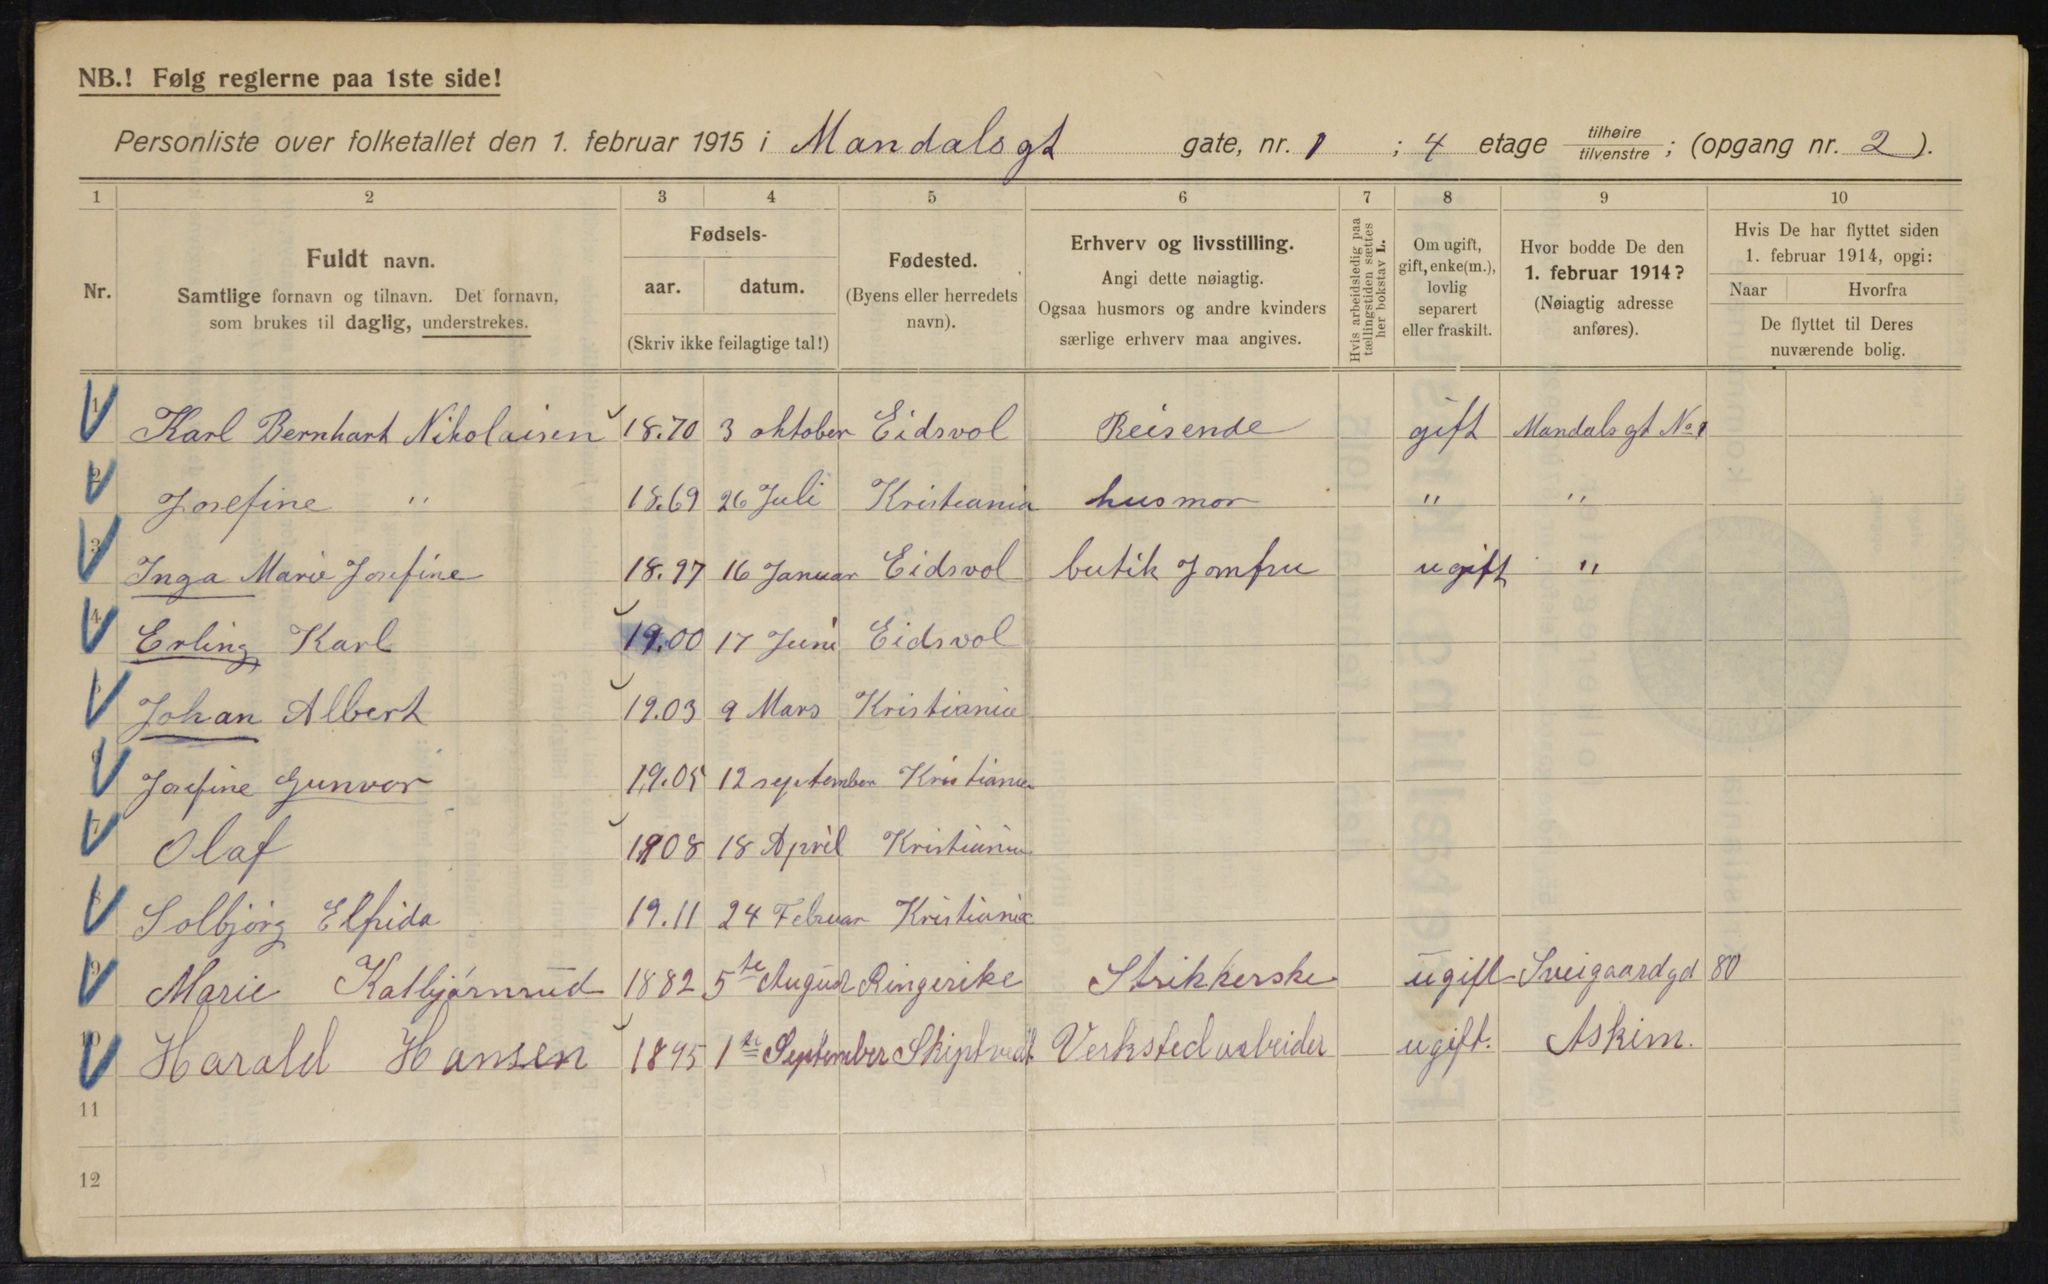 NB.! Følg reglerne paa 1ste side!
Personliste over folketallet den 1. februar 1915 i Mandalsgt gate, nr. 1 ; 4 etage tilhøire tilvenstre ; (opgang nr. 2 ).
1 2 3 4 5 6 7 8 9 10
Nr.
Fuldt navn.
Samtlige fornavn og tilnavn. Det fornavn,
som brukes til daglig, understrekes.
Fødsels-
aar. datum.
(Skriv ikke feilagtige tal!)
Fødested.
(Byens eller herredets
navn).
Erhverv og livsstilling.
Angi dette nøiagtig.
Ogsaa husmors og andre kvinders
særlige erhverv maa angives.
Hvis arbeidsledig paa
tællingstiden sættes
her bokstav L.
Om ugift,
gift, enke(m.),
lovlig
separert
eller fraskilt.
Hvor bodde De den
1. februar 1914?
(Nøiagtig adresse
anføres).
Hvis De har flyttet siden
1. februar 1914, opgi:
Naar Hvorfra
De flyttet til Deres
nuværende bolig.
1 Karl Bernhart Nikolaisen 18.70 3 oktober Eidsvol Reisende gift Mandalsgt No 1
2 Josefine " 18.69 26 Juli Kristiania husmor " "
3 Inga Marie Josefine 18.97 16 Januar Eidsvol butik Jomfru ugift "
4 Erling Karl 19.00 17 Juni Eidsvol
5 Johan Albert 19.03 9 Mars Kristiania
6 Josefine Gunvor 19.05 12 september Kristiania
7 Olaf 1908 18 April Kristiania
8 Solbjörg Elfrida 19.11 24 Februar Kristiania
9 Marie Kolbjørnrud 1882 5te August Ringerike Strikkerske ugift Sveigaardgd 80
10 Harald Hansen 1895 1ste September Skiptvedt Verksted arbeider ugift. Askim.
11
12